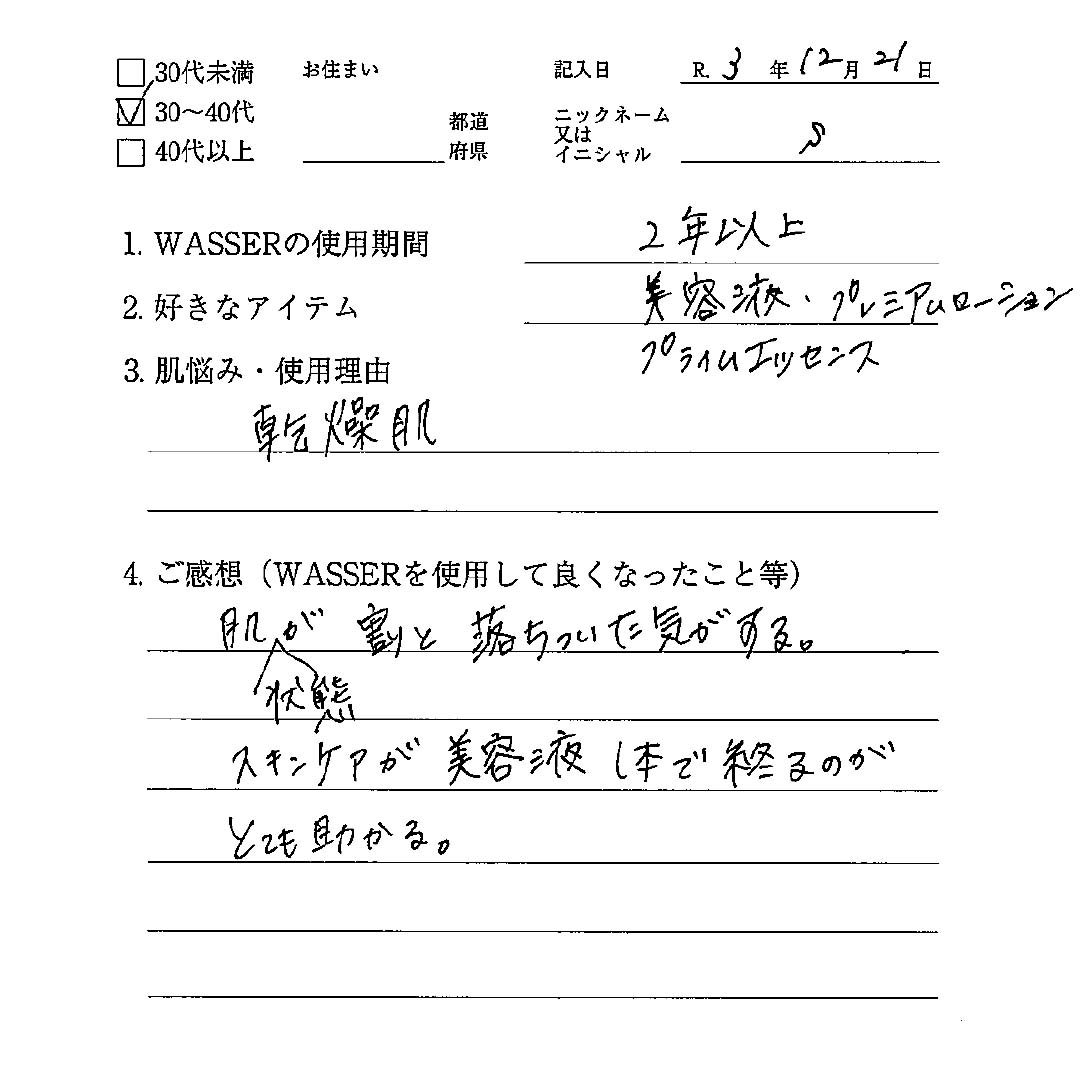 □ 30代未満 お住まい 記入日 R. 3 年 12月 21 日
☑ 30〜40代
□ 40代以上 都道府県 ニックネーム又はイニシャル S
1. WASSERの使用期間 2年以上
2. 好きなアイテム 美容液・プレミアムローション
プライムエッセンス
3. 肌悩み・使用理由
乾燥肌
4. ご感想（WASSERを使用して良くなったこと等）
肌が 割と 落ちついた気がする。
状態
スキンケアが 美容液 1本で終るのが
とても助かる。